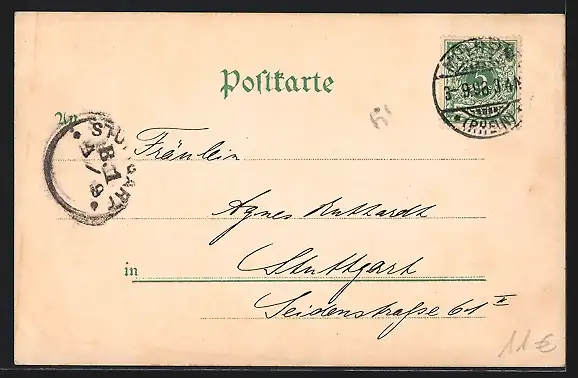 Postkarte
An
Fräulein
Agnes Ruthardt
in Stuttgart
Seidenstraße 61 II
STUTTGART
B.1
4/9
5
3-9.98
(RHEIN)
11€